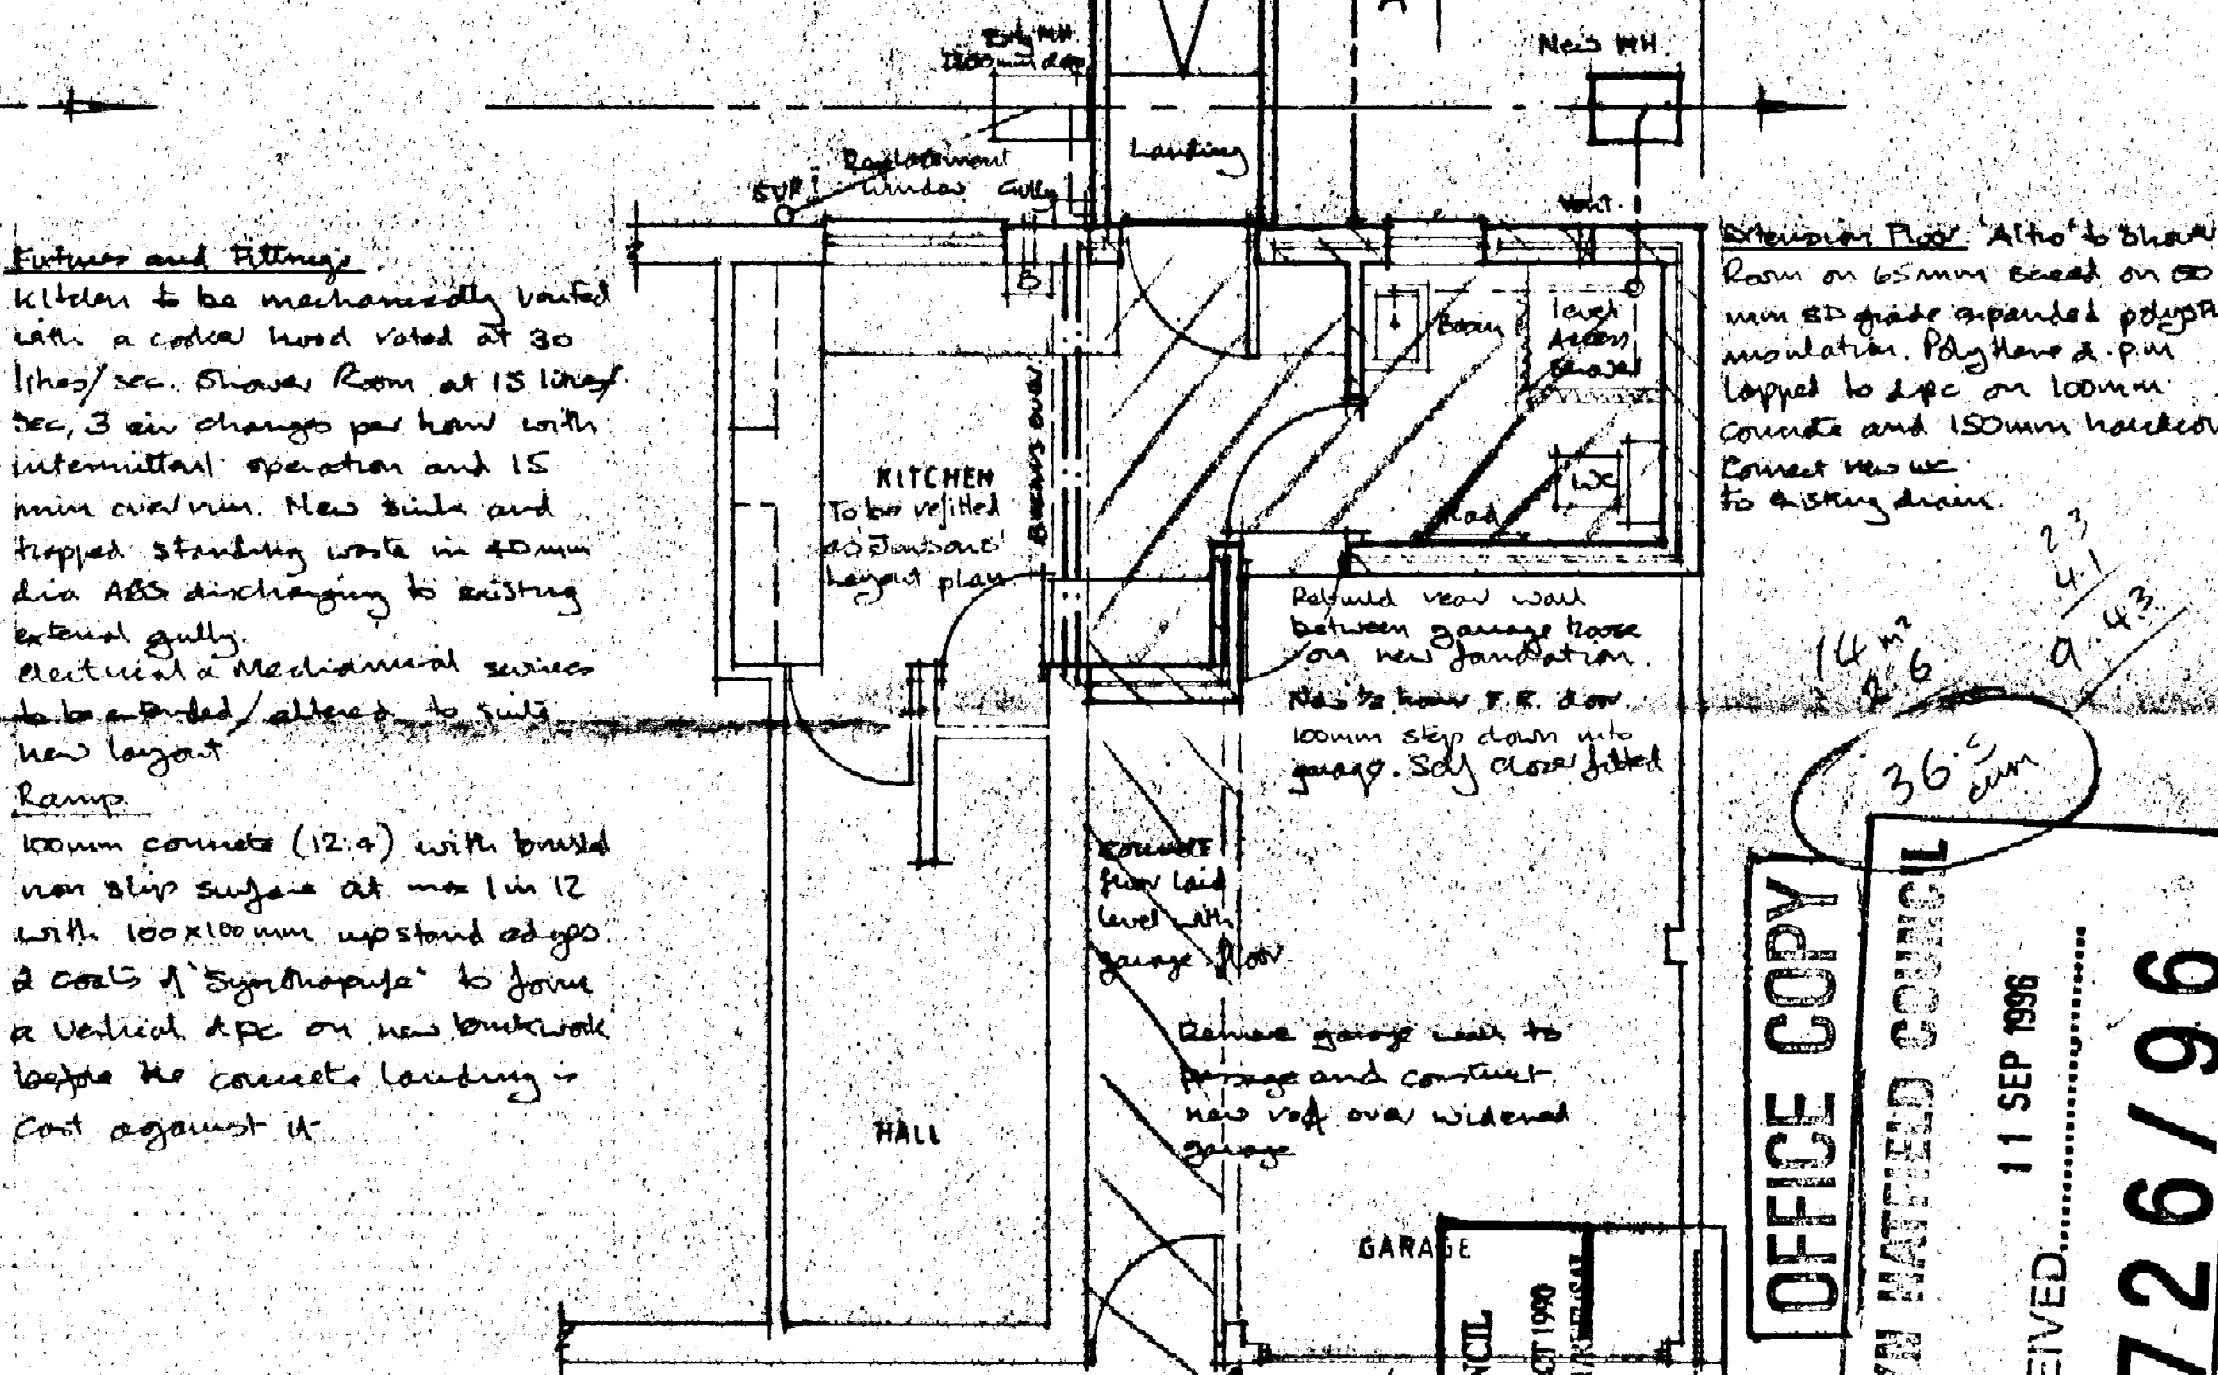 Extg MH
New MH
Landing
Replacement
window
Gully
SVP
Vent
Fixtures and Fittings
Kitchen to be mechanically vented
with a cooker hood rated at 30
litres/sec. Shower Room at 15 litres/
sec, 3 air changes per hour with
intermittent operation and 15
min overrun. New sink and
trapped standing waste in 40mm
dia ABS discharging to existing
external gully.
Electrical & Mechanical services
to be extended/altered to suite
new layout
Ramp
100mm concrete (12:4) with brushed
non slip surface at max 1 in 12
with 100x100mm upstand edges
2 coats of 'Synthaprufe' to form
a vertical dpc on new brickwork
before the concrete landing is
cast against it
B
BEAMS OVER
KITCHEN
To be refitted
Layout plan
Basin
level
Access
Shower
WC
Rad
Extension Floor 'Altro' to Shower
Room on 65mm screed on 50
mm SD grade expanded polyst
insulation. Polythene d.p.m
lapped to dpc on 100mm
concrete and 150mm hardcore
Connect new wc
to existing drain.
Rebuild rear wall
between garage & house
on new foundation.
New 1/2 hour F.R. door.
100mm step down into
garage. Self closer fitted
concrete
floor laid
level with
garage floor
Remove garage wall to
passage and construct
new roof over widened
garage
HALL
GARAGE
23
4.1
9.43
14 m²
26
36.5
cum
OFFICE COPY
YN HATFIELD COUNCIL
11 SEP 1996
EIVED
726/96
NCIL
CT 1990